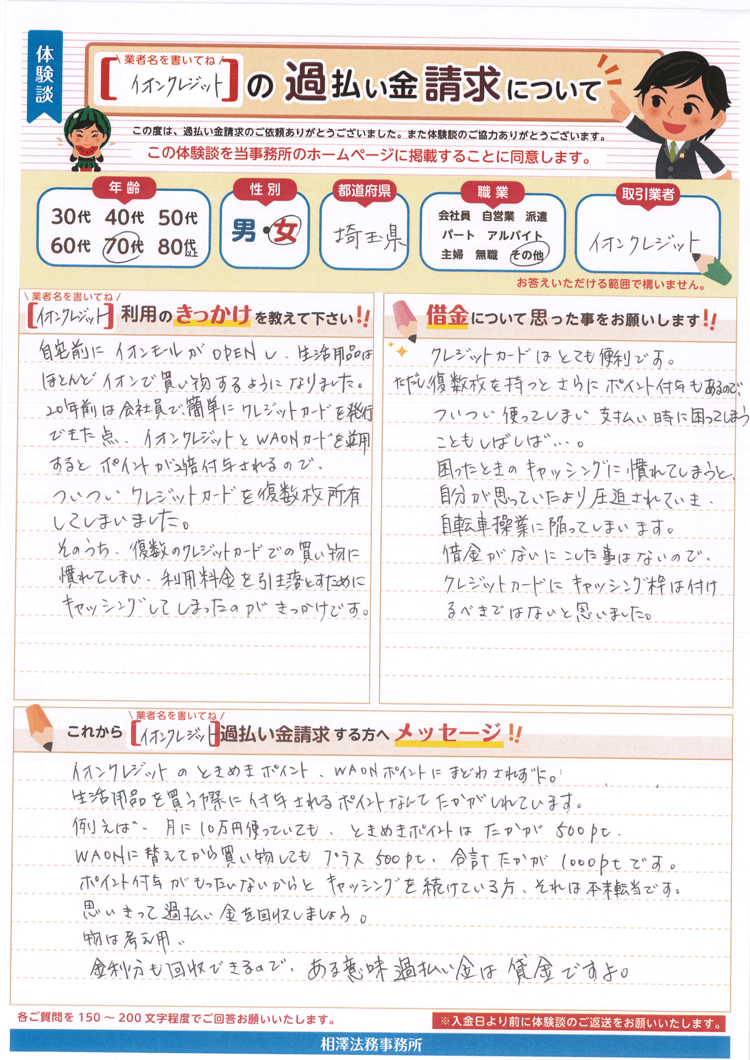 体験談
業者名を書いてね
[イオンクレジット]の過払い金請求について
この度は、過払い金請求のご依頼ありがとうございました。また体験談のご協力ありがとうございます。
この体験談を当事務所のホームページに掲載することに同意します。
年齢
30代 40代 50代
60代 70代 80代以上
性別
男・女
都道府県
埼玉県
職業
会社員 自営業 派遣
パート アルバイト
主婦 無職 その他
取引業者
イオンクレジット
お答えいただける範囲で構いません。
業者名を書いてね
[イオンクレジット]利用のきっかけを教えて下さい!!
自宅前にイオンモールがOPENし、生活用品は
ほとんどイオンで買い物するようになりました。
20年前は会社員で簡単にクレジットカードを発行
できた点、イオンクレジットとWAONカードを併用
するとポイントが2倍付与されるので、
ついついクレジットカードを複数枚所有
してしまいました。
そのうち、複数のクレジットカードでの買い物に
慣れてしまい、利用料金を引き落とすために
キャッシングしてしまったのがきっかけです。
借金について思った事をお願いします!!
クレジットカードはとても便利です。
ただし、複数枚を持つとさらにポイント付与もあるので、
ついつい使ってしまい支払い時に困ってしまう
こともしばしば…。
困ったときのキャッシングに慣れてしまうと、
自分が思っていたより圧迫されていき、
自転車操業に陥ってしまいます。
借金がないにこした事はないので、
クレジットカードにキャッシング枠は付け
るべきではないと思いました。
業者名を書いてね
これから[イオンクレジット]過払い金請求する方へメッセージ!!
イオンクレジットのときめきポイント、WAONポイントにまどわされずに。
生活用品を買う際に付与されるポイントなんてたかがしれています。
例えば、月に10万円使っていても、ときめきポイントはたかが500pt.
WAONに替えてから買い物してもプラス500pt、合計たかが1000ptです。
ポイント付与がもったいないからとキャッシングを続けている方、それは本末転当です。
思いきって過払い金を回収しましょう。
物は考え用、
金利分も回収できるので、ある意味過払い金は貸金ですよ。
各ご質問を150～200文字程度でご回答お願いいたします。
※入金日より前に体験談のご返送をお願いいたします。
相澤法務事務所